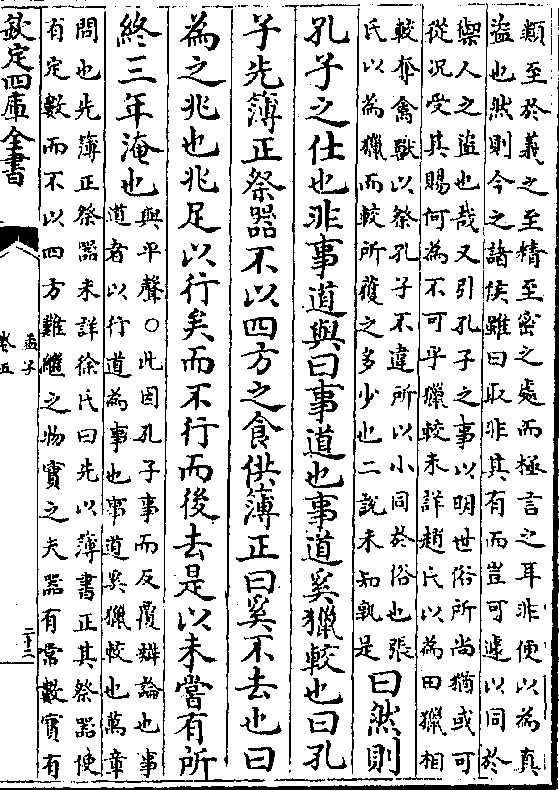 類至於義之至精至密之處而極言之耳非便以為真
盜也然則今之諸侯雖曰取非其有而豈可遽以同於
禦人之盜也哉又引孔子之事以明世俗所尚猶或可
從況受其賜何為不可乎獵較未詳趙氏以為田獵相
較奪禽獸以祭孔子不違所以小同於俗也張
氏以為獵而較所獲之多少也二說未知孰是
曰然則
孔子之仕也非事道與曰事道也事道奚獵較也曰孔
子先簿正祭器不以四方之食供簿正曰奚不去也曰
為之兆也兆足以行矣而不行而後去是以未嘗有所
終三年淹也
與平聲○此因孔子事而反覆辯論也事
道者以行道為事也事道奚獵較也萬章
問也先簿正祭器未詳徐氏曰先以簿書正其祭器使
有定數而不以四方難繼之物實之夫器有常數實有
欽定四庫全書
孟子
卷五
二十二